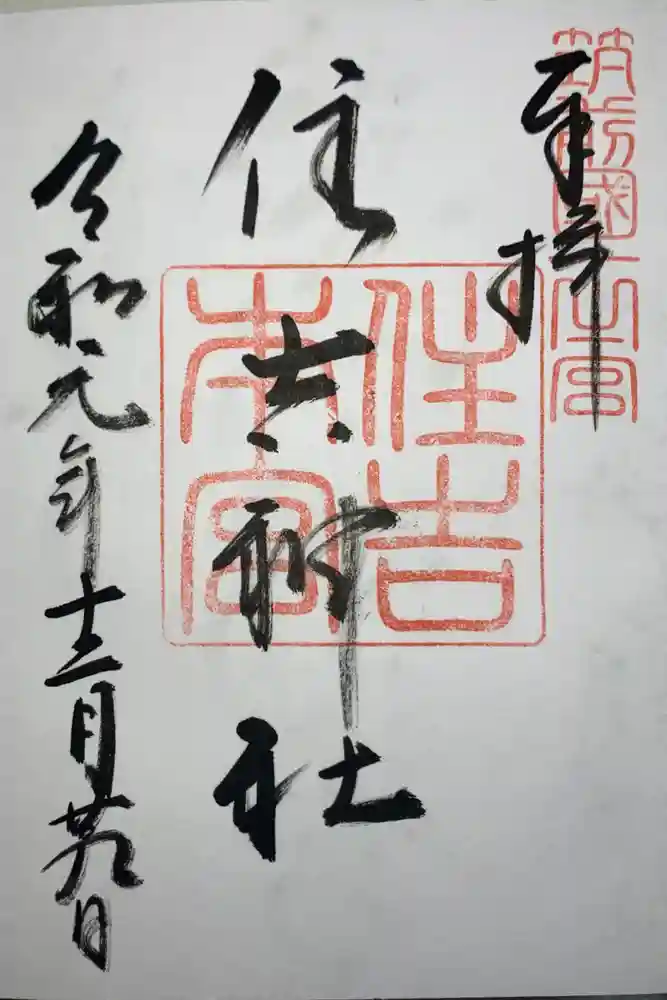 筑前國一之宮
奉拝
住吉神社
住吉
本宮
令和元年十二月廿九日